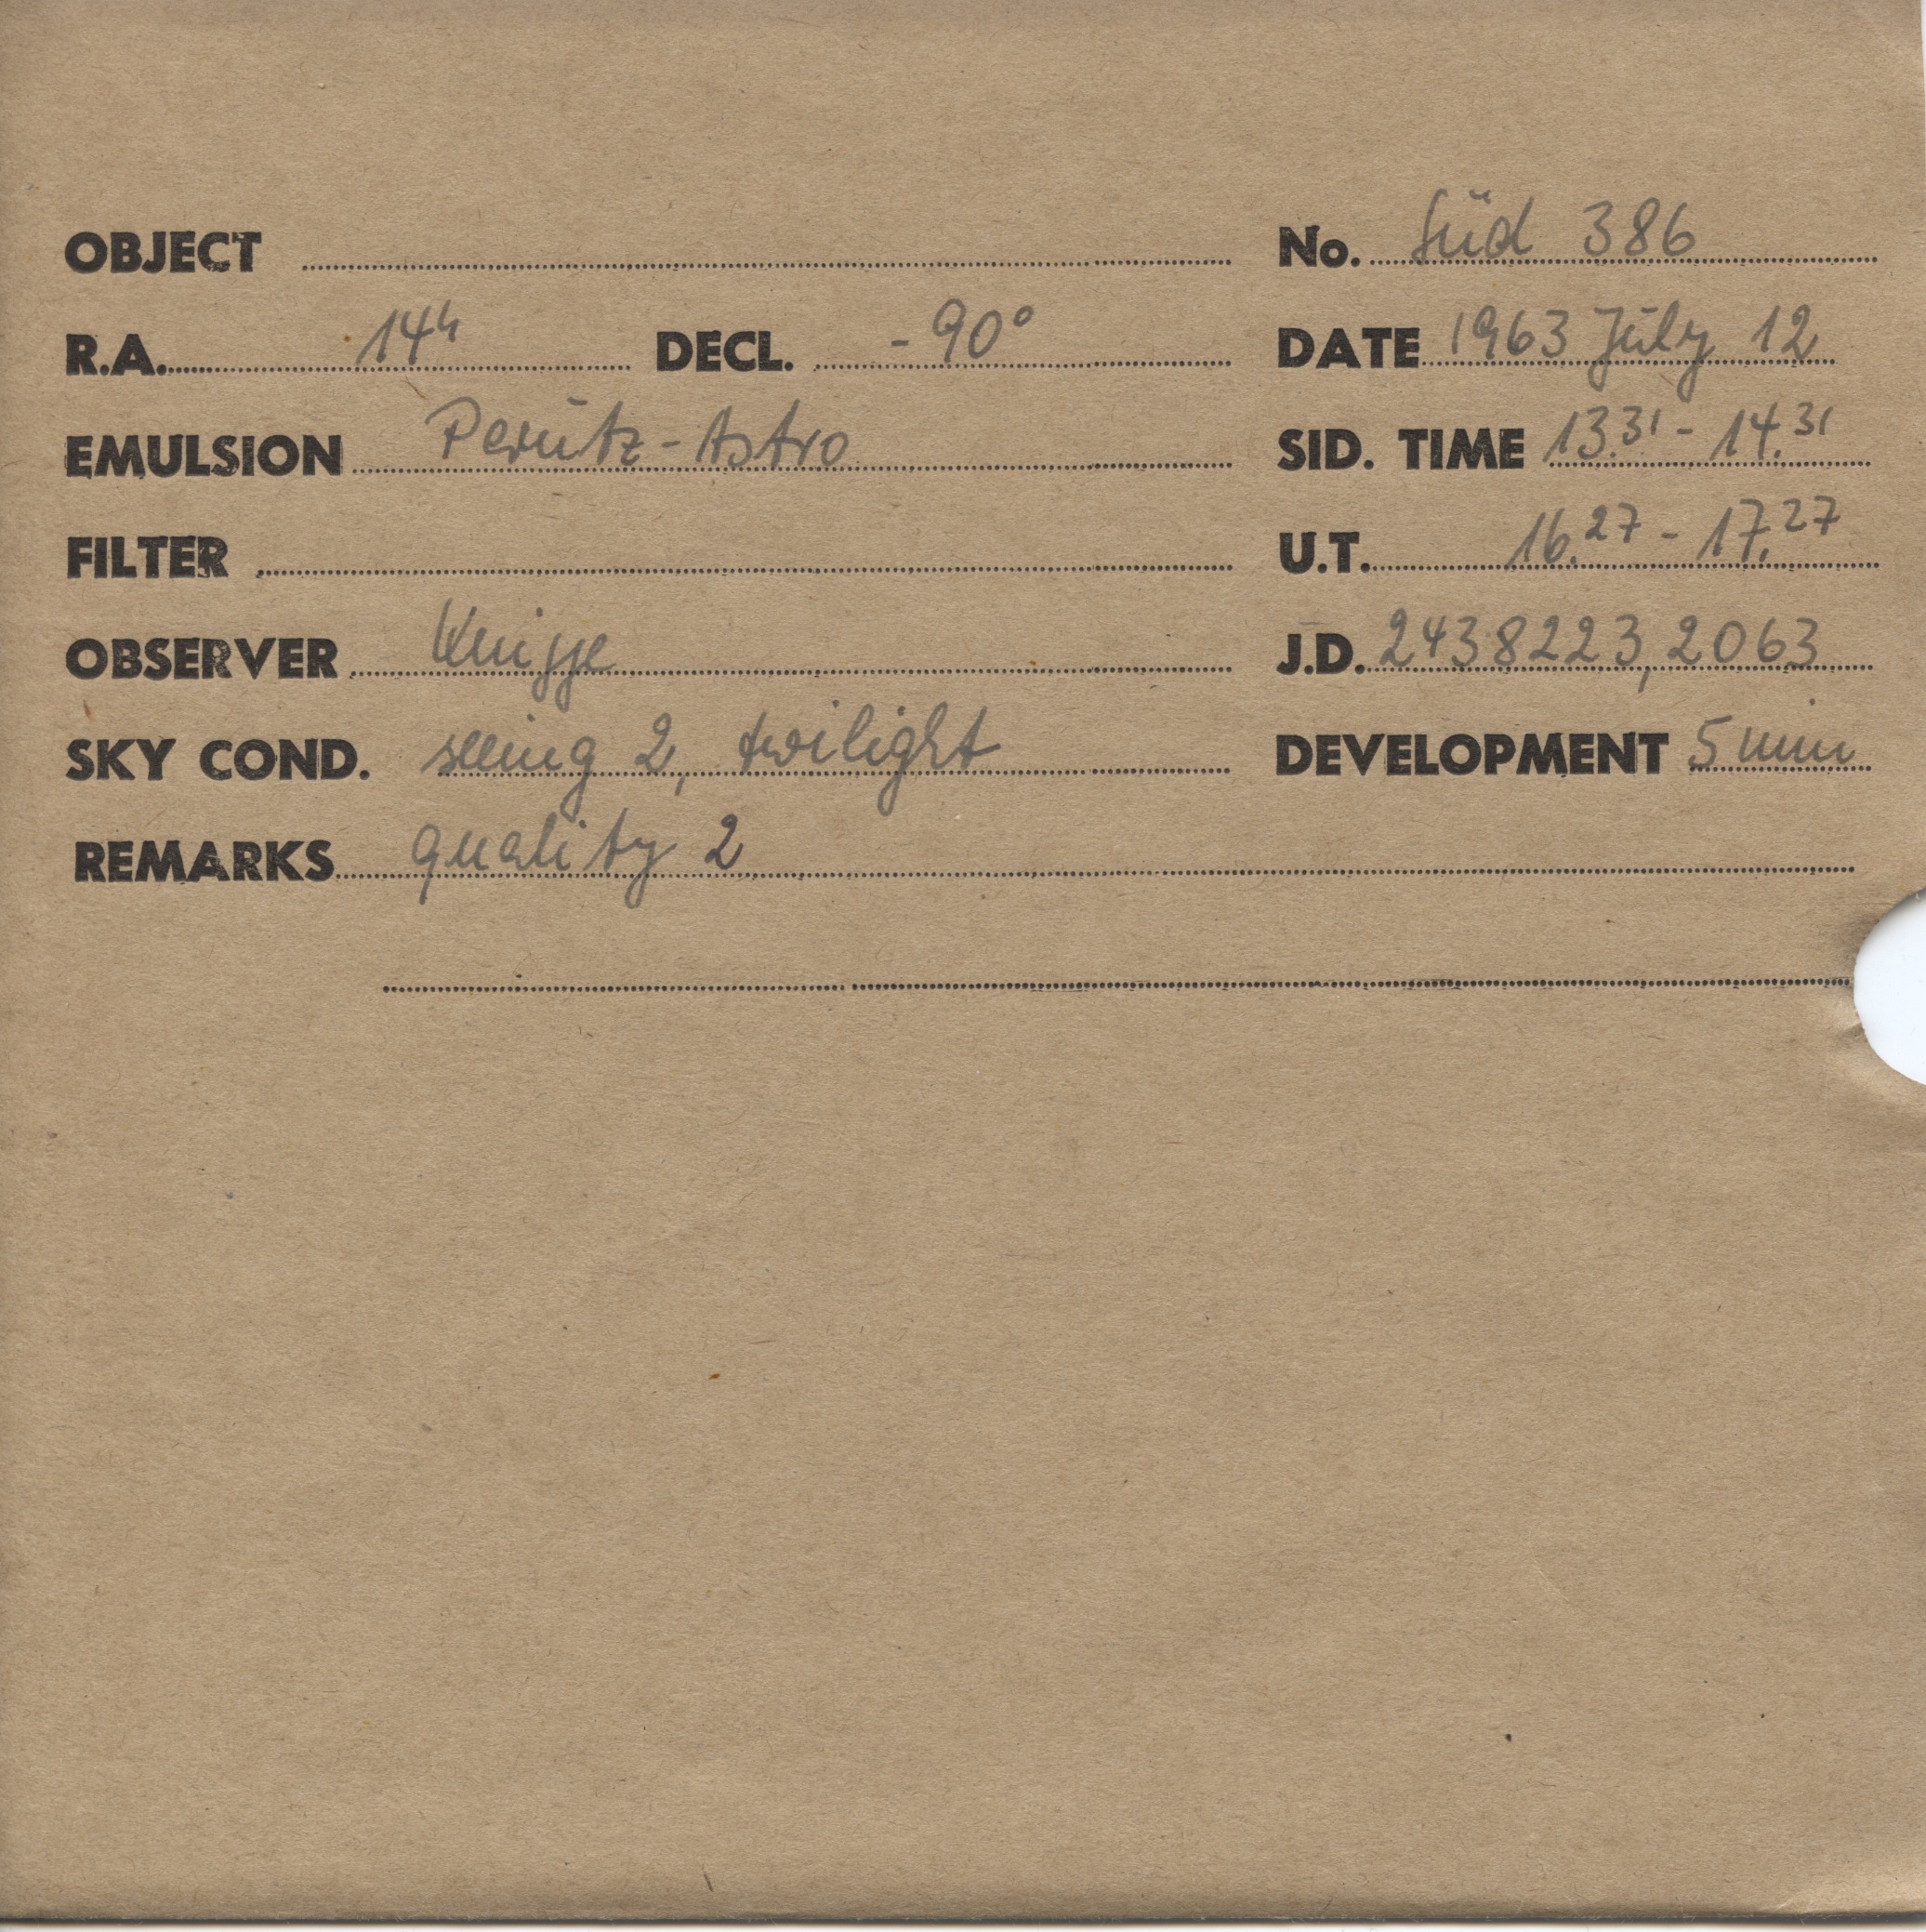 OBJECT No. Süd 386
R.A. 14h DECL. -90° DATE 1963 July 12
EMULSION Perutz-Astro SID. TIME 13.31 - 14.31
FILTER U.T. 16.27 - 17.27
OBSERVER Knigge J.D. 2438223,2063
SKY COND. seeing 2, twilight DEVELOPMENT 5 min
REMARKS quality 2